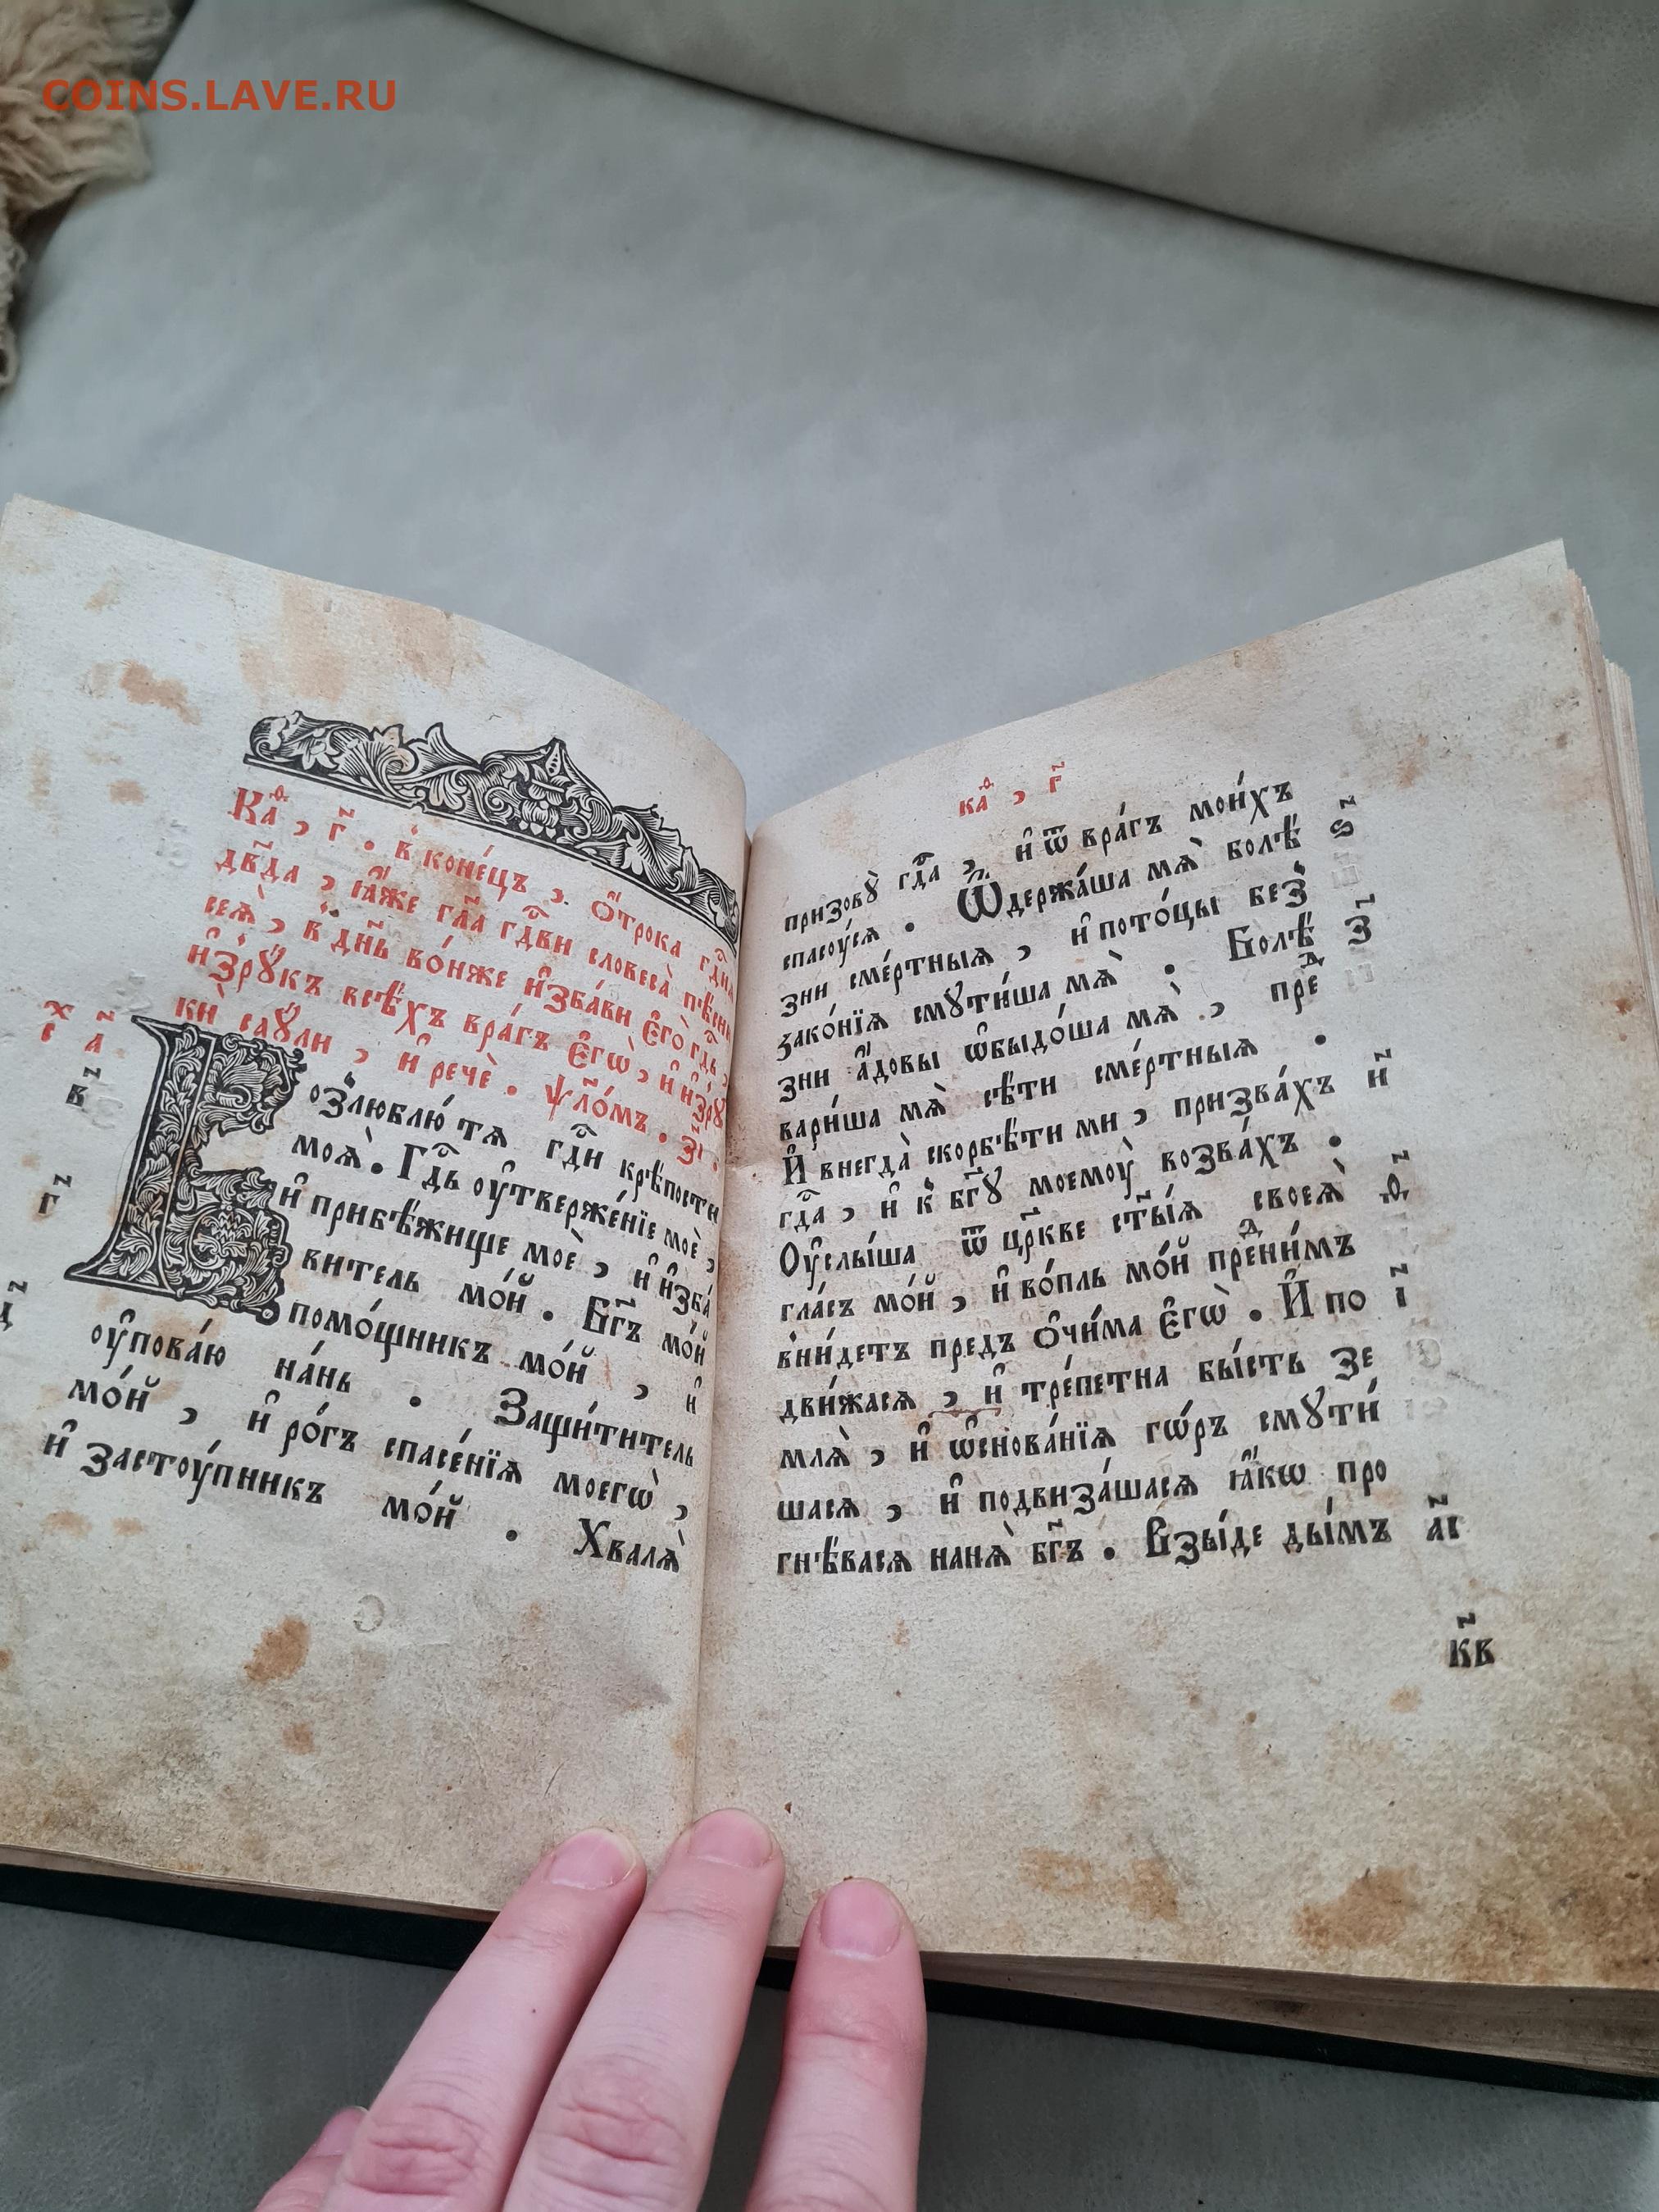 COINS.LAVE.RU
Каѳ҇ , г҃ . в҆ конє́цъ , ѻ҆́трока гд҇нѧ
дв҃да , ꙗ҆́же гл҃а гд҇ви словеса̀ пѣ́сни
сеѧ̀ , в҆ дн҃ь во́ньже и҆зба́ви є҆го̀ гд҇ь ,
и҆зрꙋ́къ всѣ́хъ вра́гъ є҆гѡ̀ , и҆ и҆зрꙋ
кѝ саꙋ́ли , и҆ речѐ . ѱало́мъ . з҃і .
озлюблю́ тѧ гд҇и крѣ́пости
моѧ̀ . Гд҇ь ᲂу҆твержє́нїе моѐ ,
и҆ прибѣ́жище моѐ , и҆ и҆зба́
витель мо́й . Бг҃ъ мо́й
помо́щникъ мо́й , и҆
ᲂу҆пова́ю на́нь . Защи́титель
мо́й , и҆ ро́гъ спасе́нїѧ моегѡ̀ ,
и҆ застоу́пникъ мо́й . Хвалѧ̀
х҇с а҃
в҃
г҃
д҃
каѳ҇ , г҃
призовꙋ̀ гд҇а , и҆ ѿ вра́гъ мои́хъ
спасоу́сѧ . Ѿдержа́ша мѧ̀ болѣ́ ѕ҃
зни сме́ртныѧ , и҆ пото́цы без̾
зако́нїѧ смꙋти́ша мѧ̀ . Болѣ́ з҃
зни а҆́довы ѡ҆быдо́ша мѧ̀ , преⷣ
вари́ша мѧ̀ сѣ́ти сме́ртныѧ .
И҆ внегда̀ скорбѣ́ти ми , призва́хъ и҃
гд҇а , и҆ к҆ бг҃ꙋ моемоу̀ возва́хъ .
Оу҆слы́ша ѿ цр҃кве ст҃ы́ѧ своеѧ̀ ѳ҃
гла́съ мо́й , и҆ во́пль мо́й преⷣни́мъ
вни́детъ предъ ѻ҆чи́ма є҆гѡ̀ . И҆ по і҃
дви́жасѧ , и҆ тре́петна бы́сть зе
млѧ̀ , и҆ ѡ҆снова́нїѧ гѡ́ръ смꙋти́
шасѧ , и҆ подвиза́шасѧ ꙗ҆́кѡ про
гнѣ́васѧ нанѧ̀ бг҃ъ . Взы́де ды́мъ а҃і
к҃в